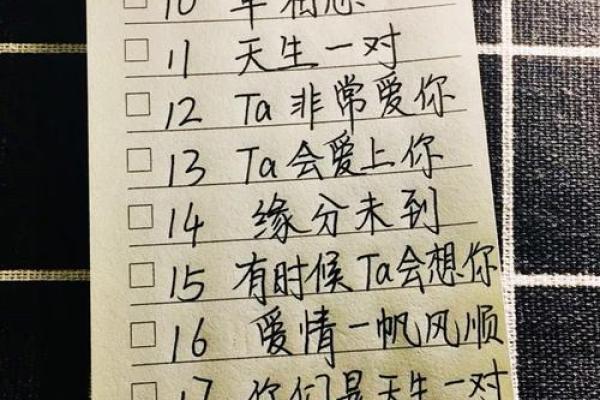 10 单相思
11 天生一对
12 Ta非常爱你
13 Ta会爱上你
14 缘分未到
15 有时候Ta会想你
16 爱情一帆风顺
17 你们是天生一对